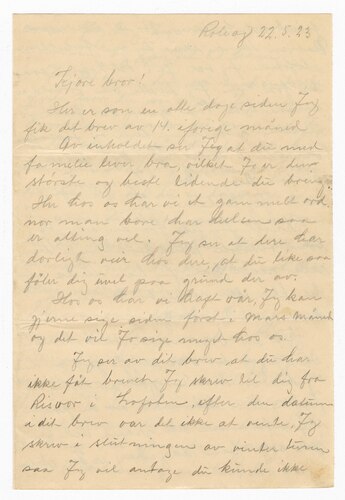 22.5.23
Kjære bror!
Her er som en alle dage siden Jeg
fik det brev av 14. forege måned
Av inholdet ser Jeg at du med
familie lever bra, vilket Jo er den
største og beste du
Her hos os har vi et gammelt ord
nor man bare har helsen saa
er alting vel. Jeg ser at dere har
dorligt vær hos dere, at du ikke saa
føler dig vel paa grund der av.
Her os har vi havt vår, Jeg kan
gjerne sige siden først i Mars måned
og det vil Jo sige meget hos os.
Jeg ser av dit brev, at du har
ikke fåt brevet Jeg skrev til dig fra
Risvær i Lofoten, efter den datum
i dit brev var det ikke at vente, Jeg
skrev i slutningen av vinter turen
saa Jeg vil antage du kunde ikke